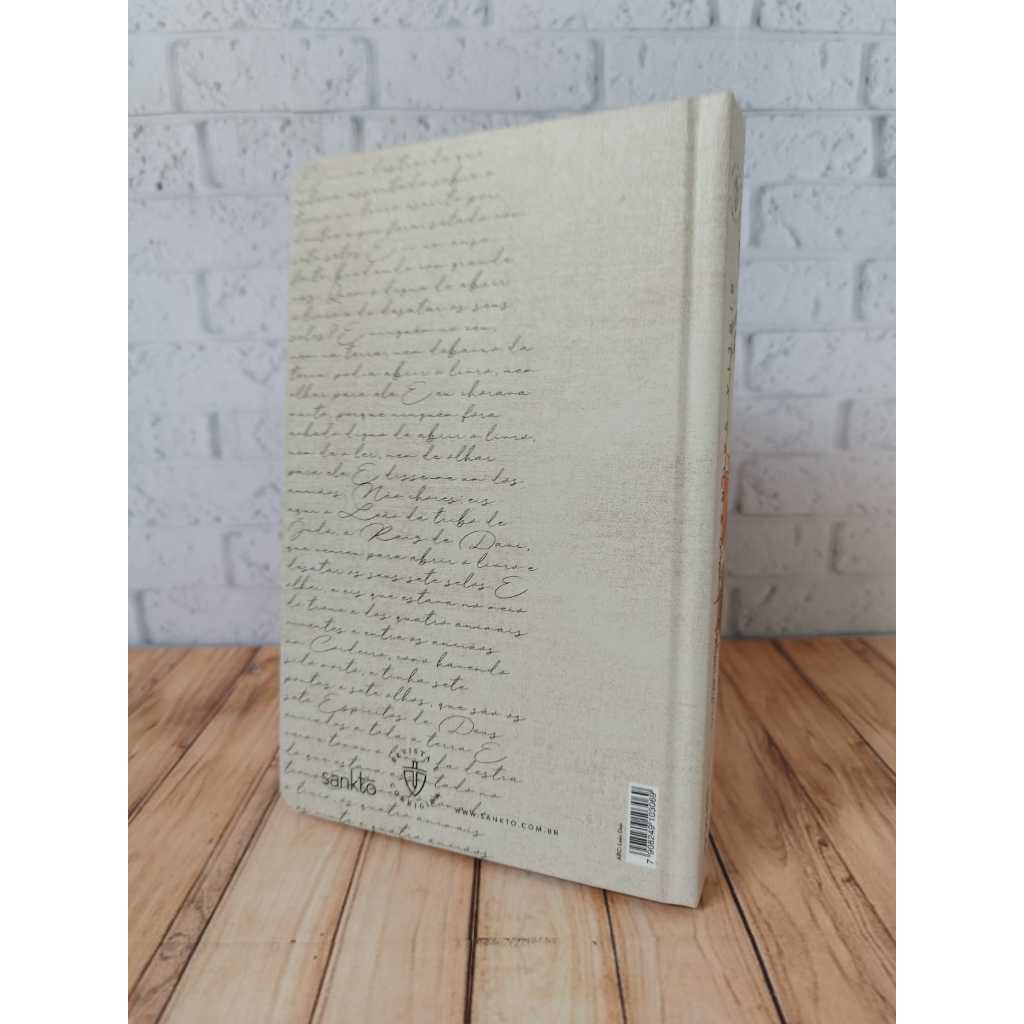 estava assentado sobre o
livro escrito por
selado com
sete selos. E vi um anjo
forte, bradando com grande
voz: Quem é digno de abrir
o livro e de desatar os seus
selos? E ninguém no céu,
nem na terra, nem debaixo da
terra, podia abrir o livro, nem
olhar para ele. E eu chorava
muito, porque ninguém fora
achado digno de abrir o livro,
nem de o ler, nem de olhar
para ele. E disse-me um dos
anciãos: Não chores; eis
aqui o Leão da tribo de
Judá, a Raiz de Davi,
que venceu para abrir o livro e
desatar os seus sete selos. E
olhei, e eis que estava no meio
do trono e dos quatro animais
viventes e entre os anciãos
um Cordeiro, como havendo
sido morto, e tinha sete
pontas e sete olhos, que são os
sete Espíritos de Deus
enviados a toda a terra. E
veio e tomou o da destra
do que estava no
o livro, os quatro animais
e vinte e quatro anciãos
sankto
REVISTA
WWW.SANKTO.COM.BR
ARC Leão
7 908249 103069